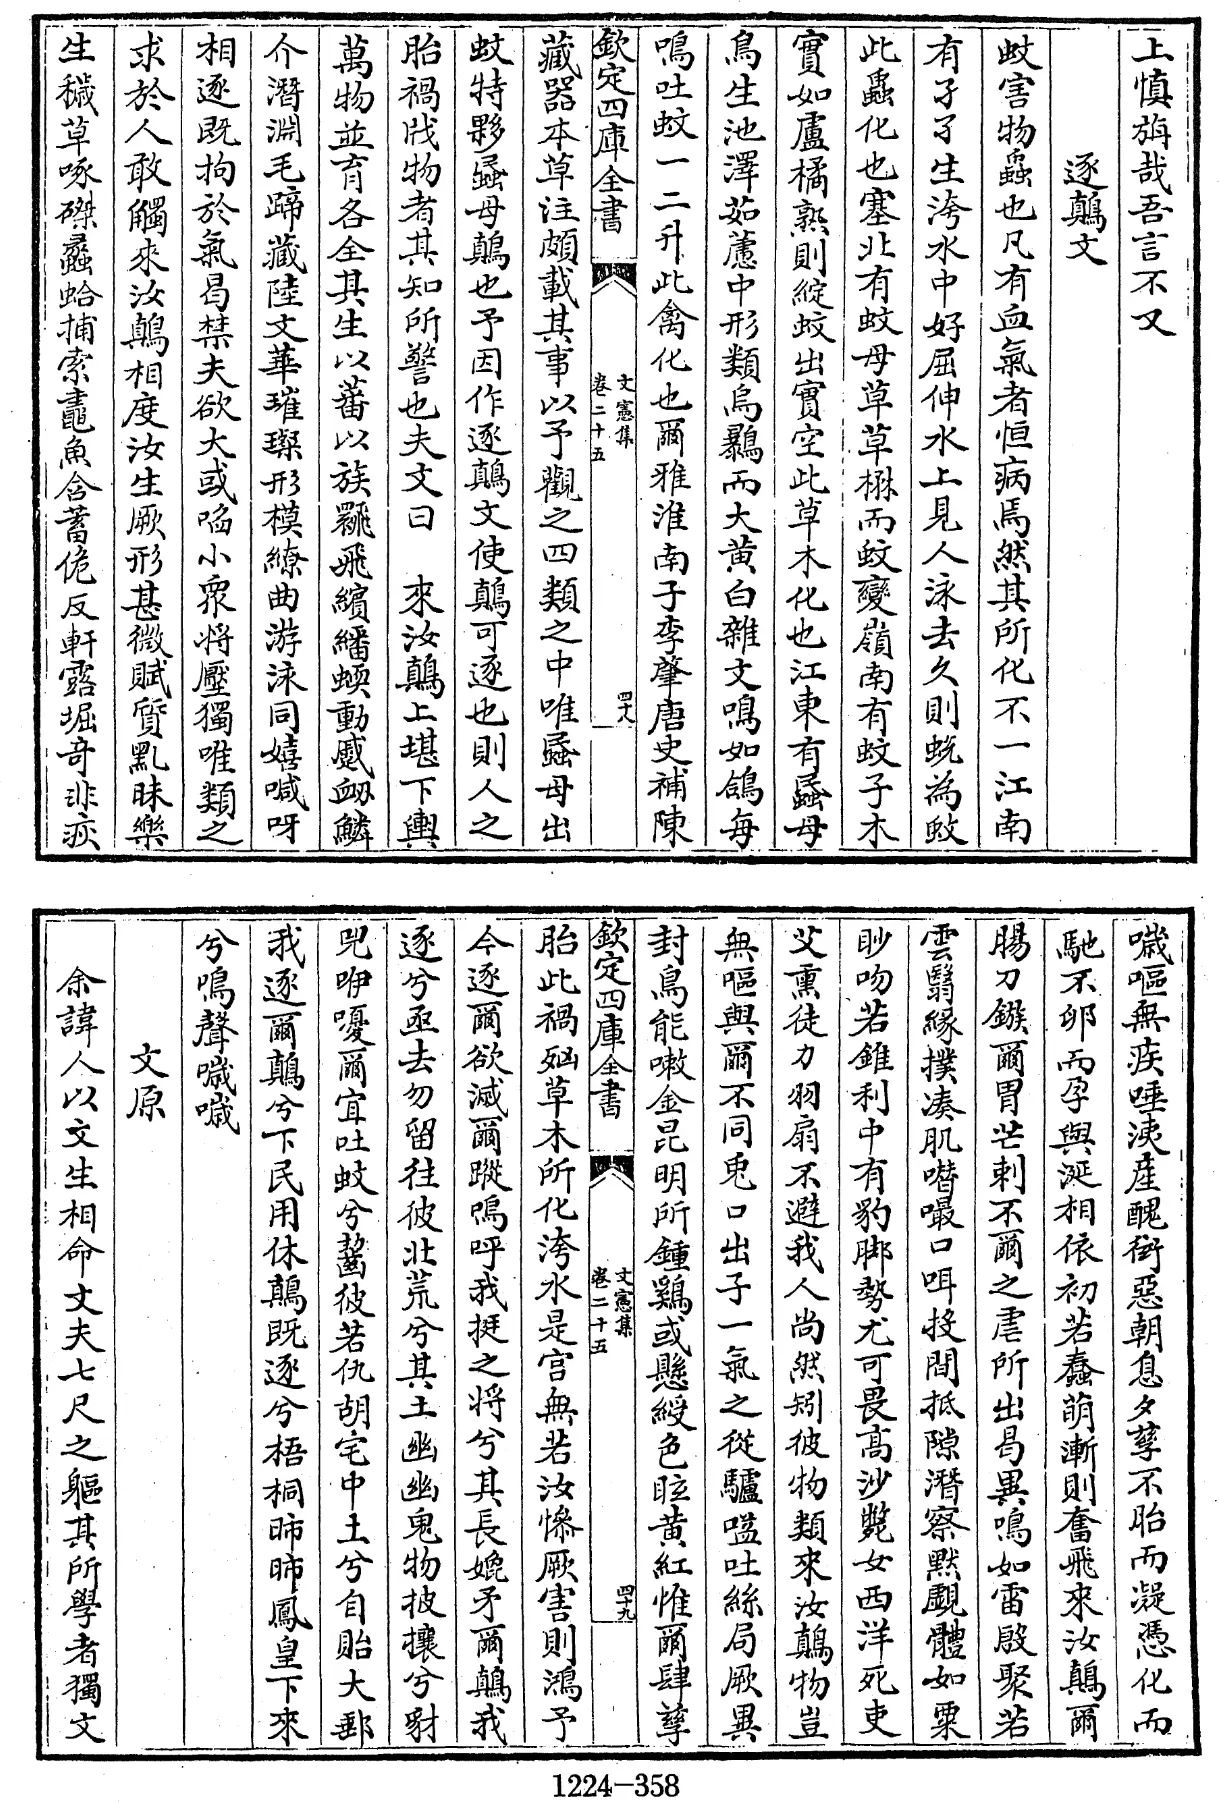 上慎旃哉吾言不又
逐鷏文
蚊害物蟲也凡有血氣者恒病焉然其所化不一江南
有孑孓生洿水中好屈伸水上見人泳去久則蛻為蚊
此蟲化也塞北有蚊母草草楙而蚊變嶺南有蚊子木
實如盧橘熟則綻蚊出實空此草木化也江東有蟁母
鳥生池澤茹藘中形類烏鸔而大黄白雜文鳴如鴿每
鳴吐蚊一二升此禽化也爾雅淮南子李肇唐史補陳
欽定四庫全書
文憲集
卷二十五
四十八
藏器本草注頗載其事以予觀之四類之中唯蟁母出
蚊特夥蟁母鷏也予因作逐鷏文使鷏可逐也則人之
胎禍戕物者其知所警也夫文曰 來汝鷏上堪下輿
萬物並育各全其生以蕃以族翾飛繽繙蝡動蹙衂鱗
介潛淵毛蹄藏陸文華璀璨形模繚曲游泳同嬉喊呀
相逐既拘於氣曷禁夫欲大或啗小衆將壓獨唯類之
求於人敢觸來汝鷏相度汝生厥形甚微賦質黮昧樂
生穢草啄磔蠡蛤捕索鼃魚含蓄佹反軒露堀奇非疢
噦嘔無疾唾洟産醜衒惡朝息夕孳不胎而凝憑化而
馳不卵而孕與涎相依初若蠢萌漸則奮飛來汝鷏爾
腸刀鏃爾胃芒刺不爾之虐所出曷異鳴如雷殷聚若
雲翳緣撲湊肌噆嘬口咡投間抵隙潛察黙覷體如粟
眇吻若錐利中有豹脚勢尤可畏高沙斃女西洋死吏
艾熏徒力羽扇不避我人尚然矧彼物類來汝鷏物豈
無嘔與爾不同兎口出子一氣之從驢嗌吐絲局厥異
封鳥能嗽金昆明所鍾鷄或懸綬色眩黄紅惟爾肆孳
欽定四庫全書
文憲集
卷二十五
四十九
胎此禍㐫草木所化洿水是宫無若汝慘厥害則鴻予
今逐爾欲滅爾蹤嗚呼我挺之將兮其長㜻矛爾鷏我
逐兮亟去勿留往彼北荒兮其土幽幽鬼物披攘兮豺
兕咿嚘爾宜吐蚊兮齧彼若仇胡宅中土兮自貽大郵
我逐爾鷏兮下民用休鷏既逐兮梧桐㫍㫍鳳皇下來
兮鳴聲噦噦
文原
余諱人以文生相命丈夫七尺之軀其所學者獨文
1224-358